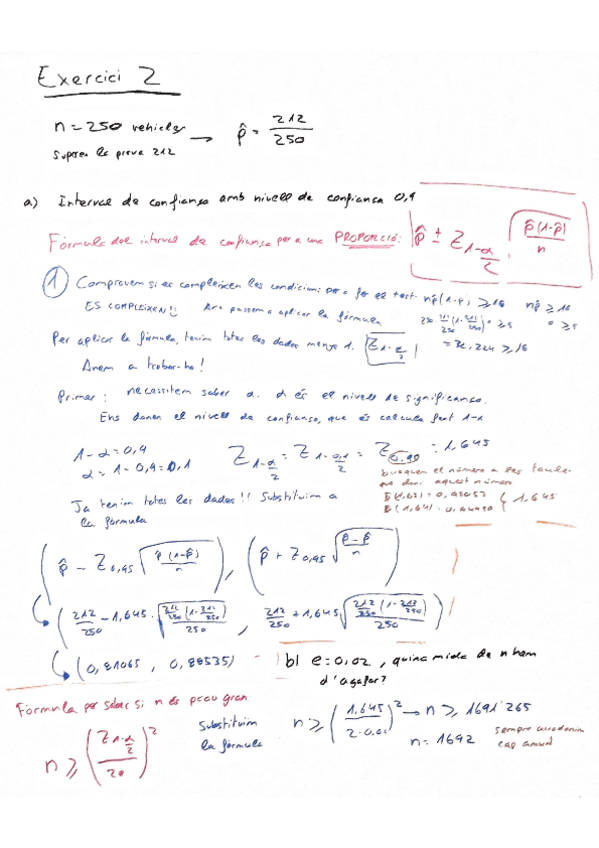 Exercici 2
n = 250 vehicles → p̂ = 212/250
Superen la prova 212
a) Interval de confiança amb nivell de confiança 0,9
Fórmula del interval de confiança per a una PROPORCIÓ: p̂ ± Z 1-α/2 · √(p̂(1-p̂)/n)
① Comprovem si es compleixen les condicions per a fer el test. np̂(1-p̂) ≥ 18 np̂ ≥ 10
ES COMPLEIXEN!! Ara passem a aplicar la fórmula 250 · 212/250 (1 - 212/250) ≥ 5
Per aplicar la fórmula, tenim totes les dades menys 1. Z 1-α/2 = 32,224 ≥ 18
Anem a trobar-ho!
Primer: necessitem saber α. α és el nivell de significança.
Ens donen el nivell de confiança, que és calcula fent 1-α
1-α = 0,9
α = 1-0,9 = 0,1 Z 1-α/2 = Z 1-0,1/2 = Z = 1,645
busquem el número a les taules
que doni aquest número
Ja tenim totes les dades!! Substituim a
la fórmula
(p̂ - Z 0,95 √(p̂(1-p̂)/n) , p̂ + Z 0,95 √(p̂-p̂/n))
(212/250 - 1,645 · √(212/250 (1-212/250)/250) , 212/250 + 1,645 √(212/250 (1-212/250)/250))
(0,81065 , 0,88535)
b) e = 0,02 , quina mida de n hem
d'agafar?
Fórmula per saber si n és prou gran
n ≥ (Z 1-α/2 / 2e)²
Substituim
la fórmula
n ≥ (1,645/2·0,02)² → n ≥ 1691'265
n = 1692 sempre arrodonim
cap amunt